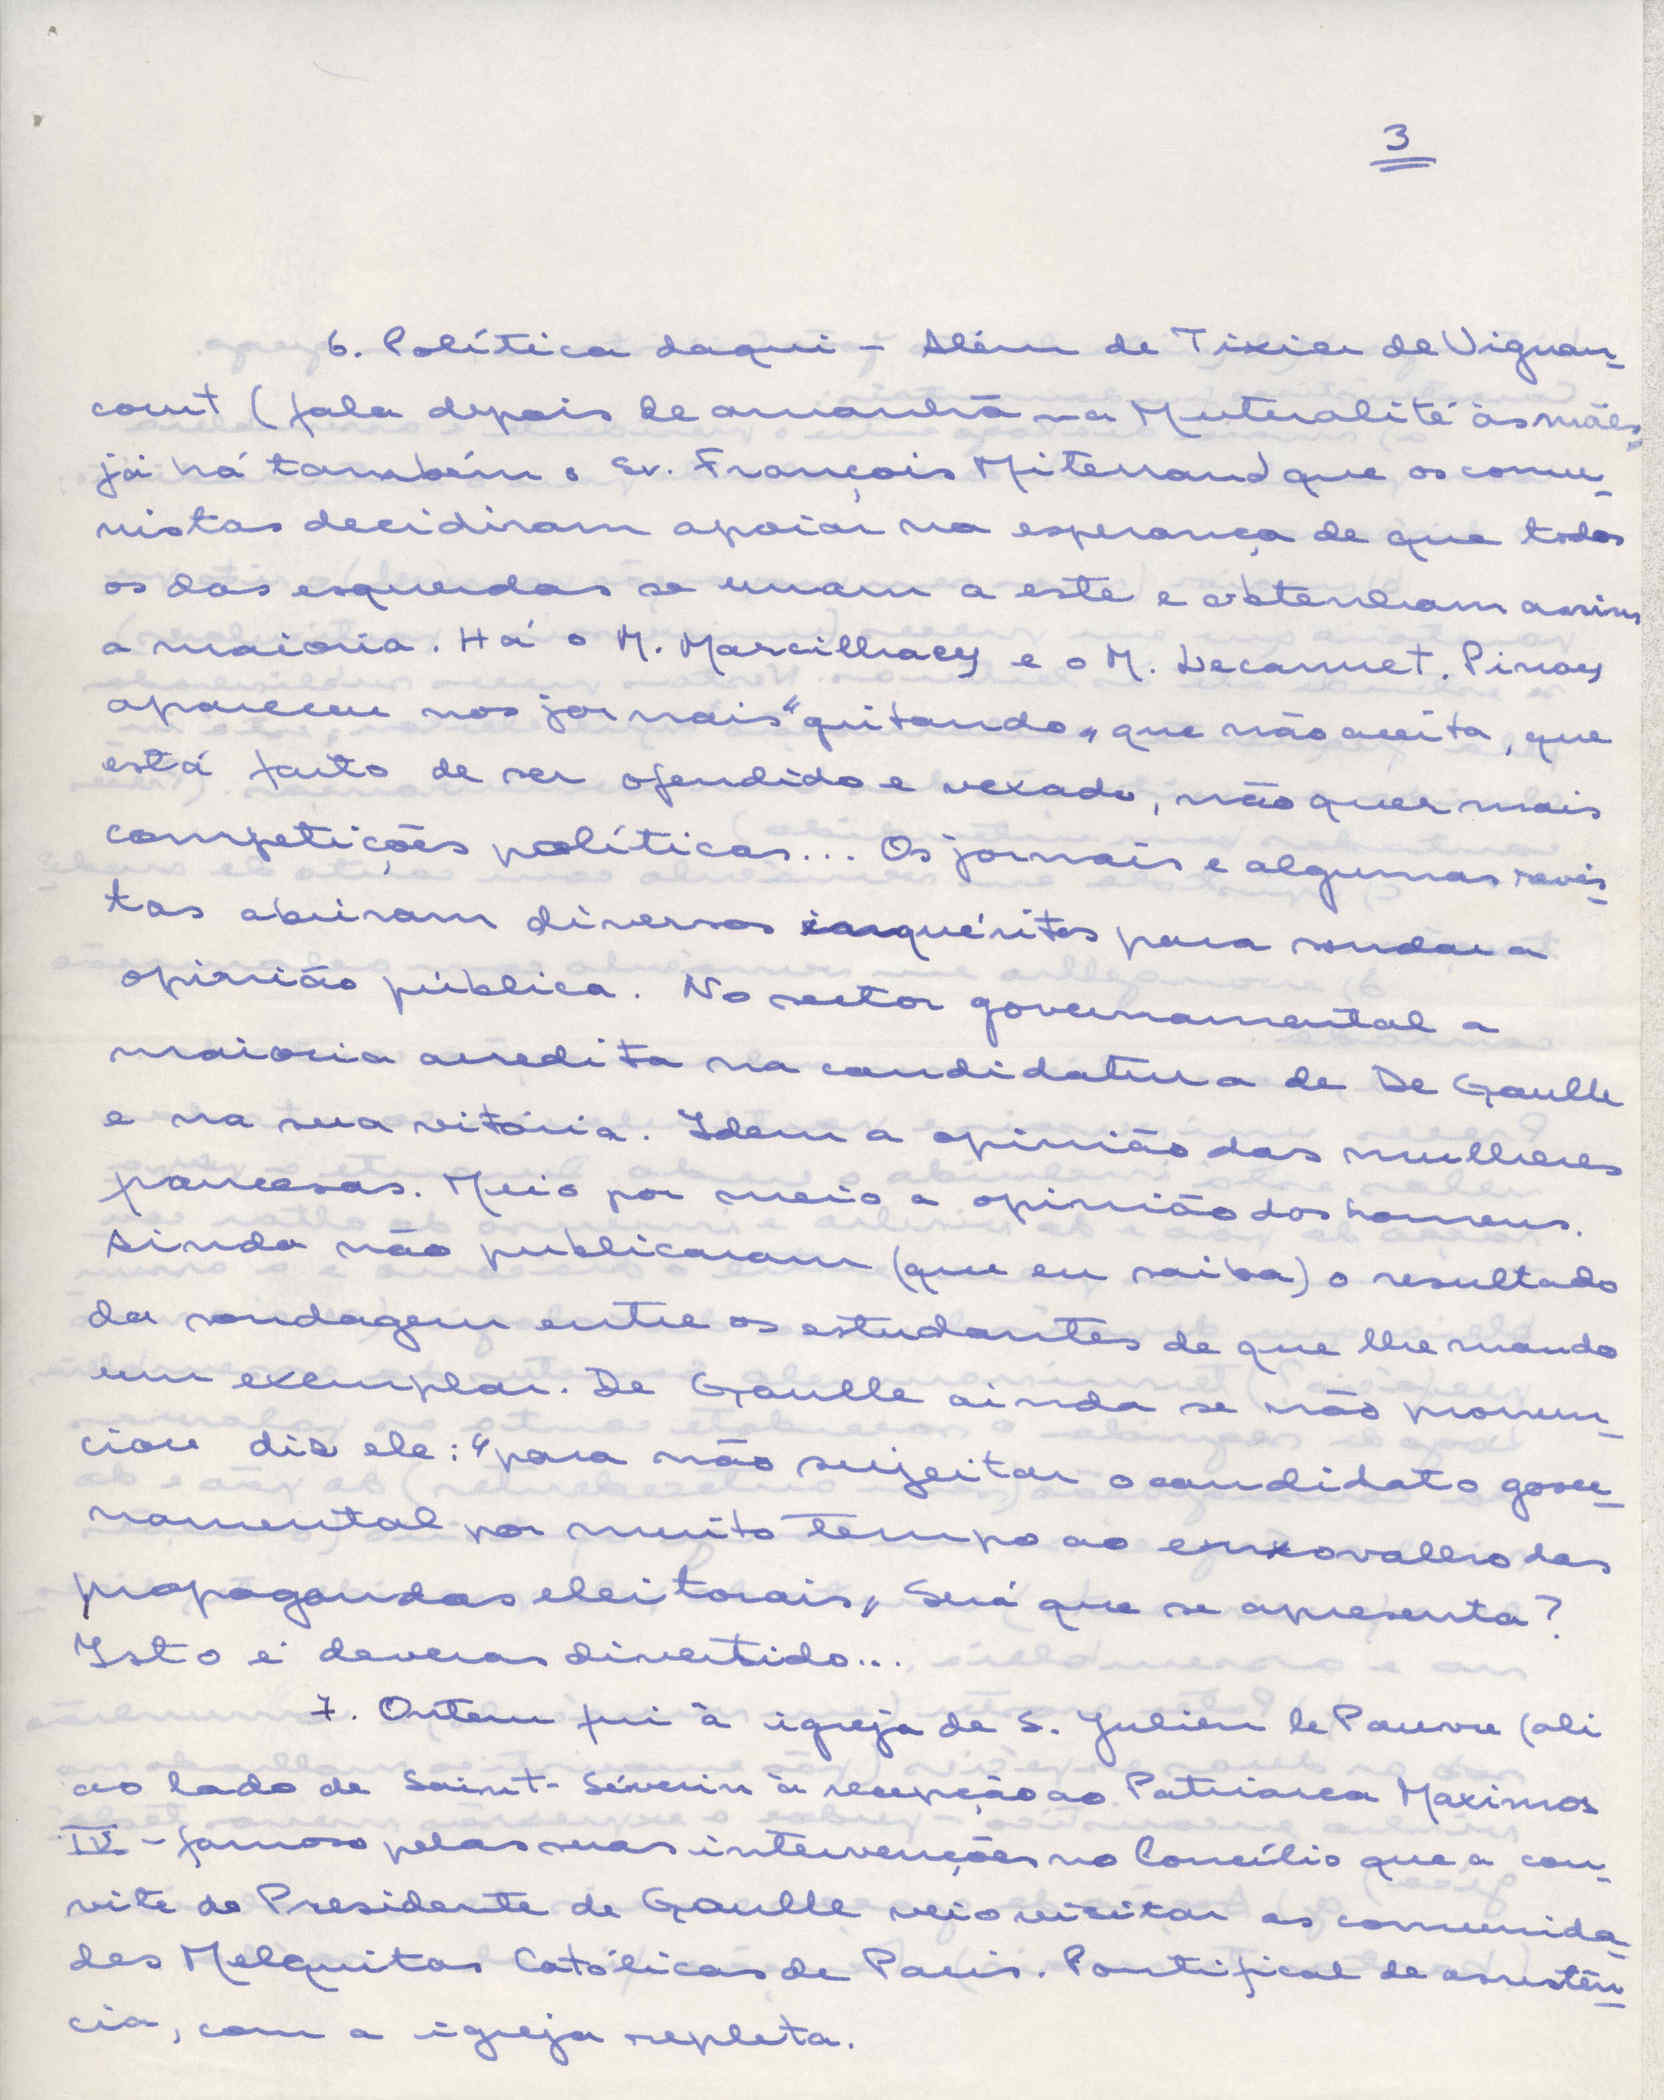 3
6. Política daqui – Além de Tixier de Vignan-
court (fala depois de amanhã na Mutualité às mães,
já há também o Sr. François Miterrand que os comu-
nistas decidiram apoiar na esperança de que todos
os das esquerdas se unam a este e obtenham assim
a maioria. Há o M. Marcilhacy e o M. Lecanuet. Pinay
apareceu nos jornais "gritando" que não aceita, que
está farto de ser ofendido e vexado, não quer mais
competições políticas... Os jornais e algumas revis-
tas abriram diversos inquéritos para sondar a
opinião pública. No sector governamental a
maioria acredita na candidatura de De Gaulle
e na sua vitória. Idem a opinião das mulheres
francesas. Meio por meio a opinião dos homens.
Ainda não publicaram (que eu saiba) o resultado
da sondagem entre os estudantes de que lhe mando
um exemplar. De Gaulle ainda se não pronun-
ciou diz ele: "para não sujeitar o candidato gover-
namental por muito tempo ao enxovalho das
propagandas eleitorais" Será que se apresenta?
Isto é deveras divertido...
7. Ontem fui à igreja de S. Julien le Pauvre (ali
ao lado de Saint-Séverin à recepção ao Patriarca Maximos
IV – famoso pelas suas intervenções no Concílio que a con-
vite do Presidente de Gaulle veio visitar as comunida-
des Melquitas Católicas de Paris. Pontifical de assistên-
cia, com a igreja repleta.